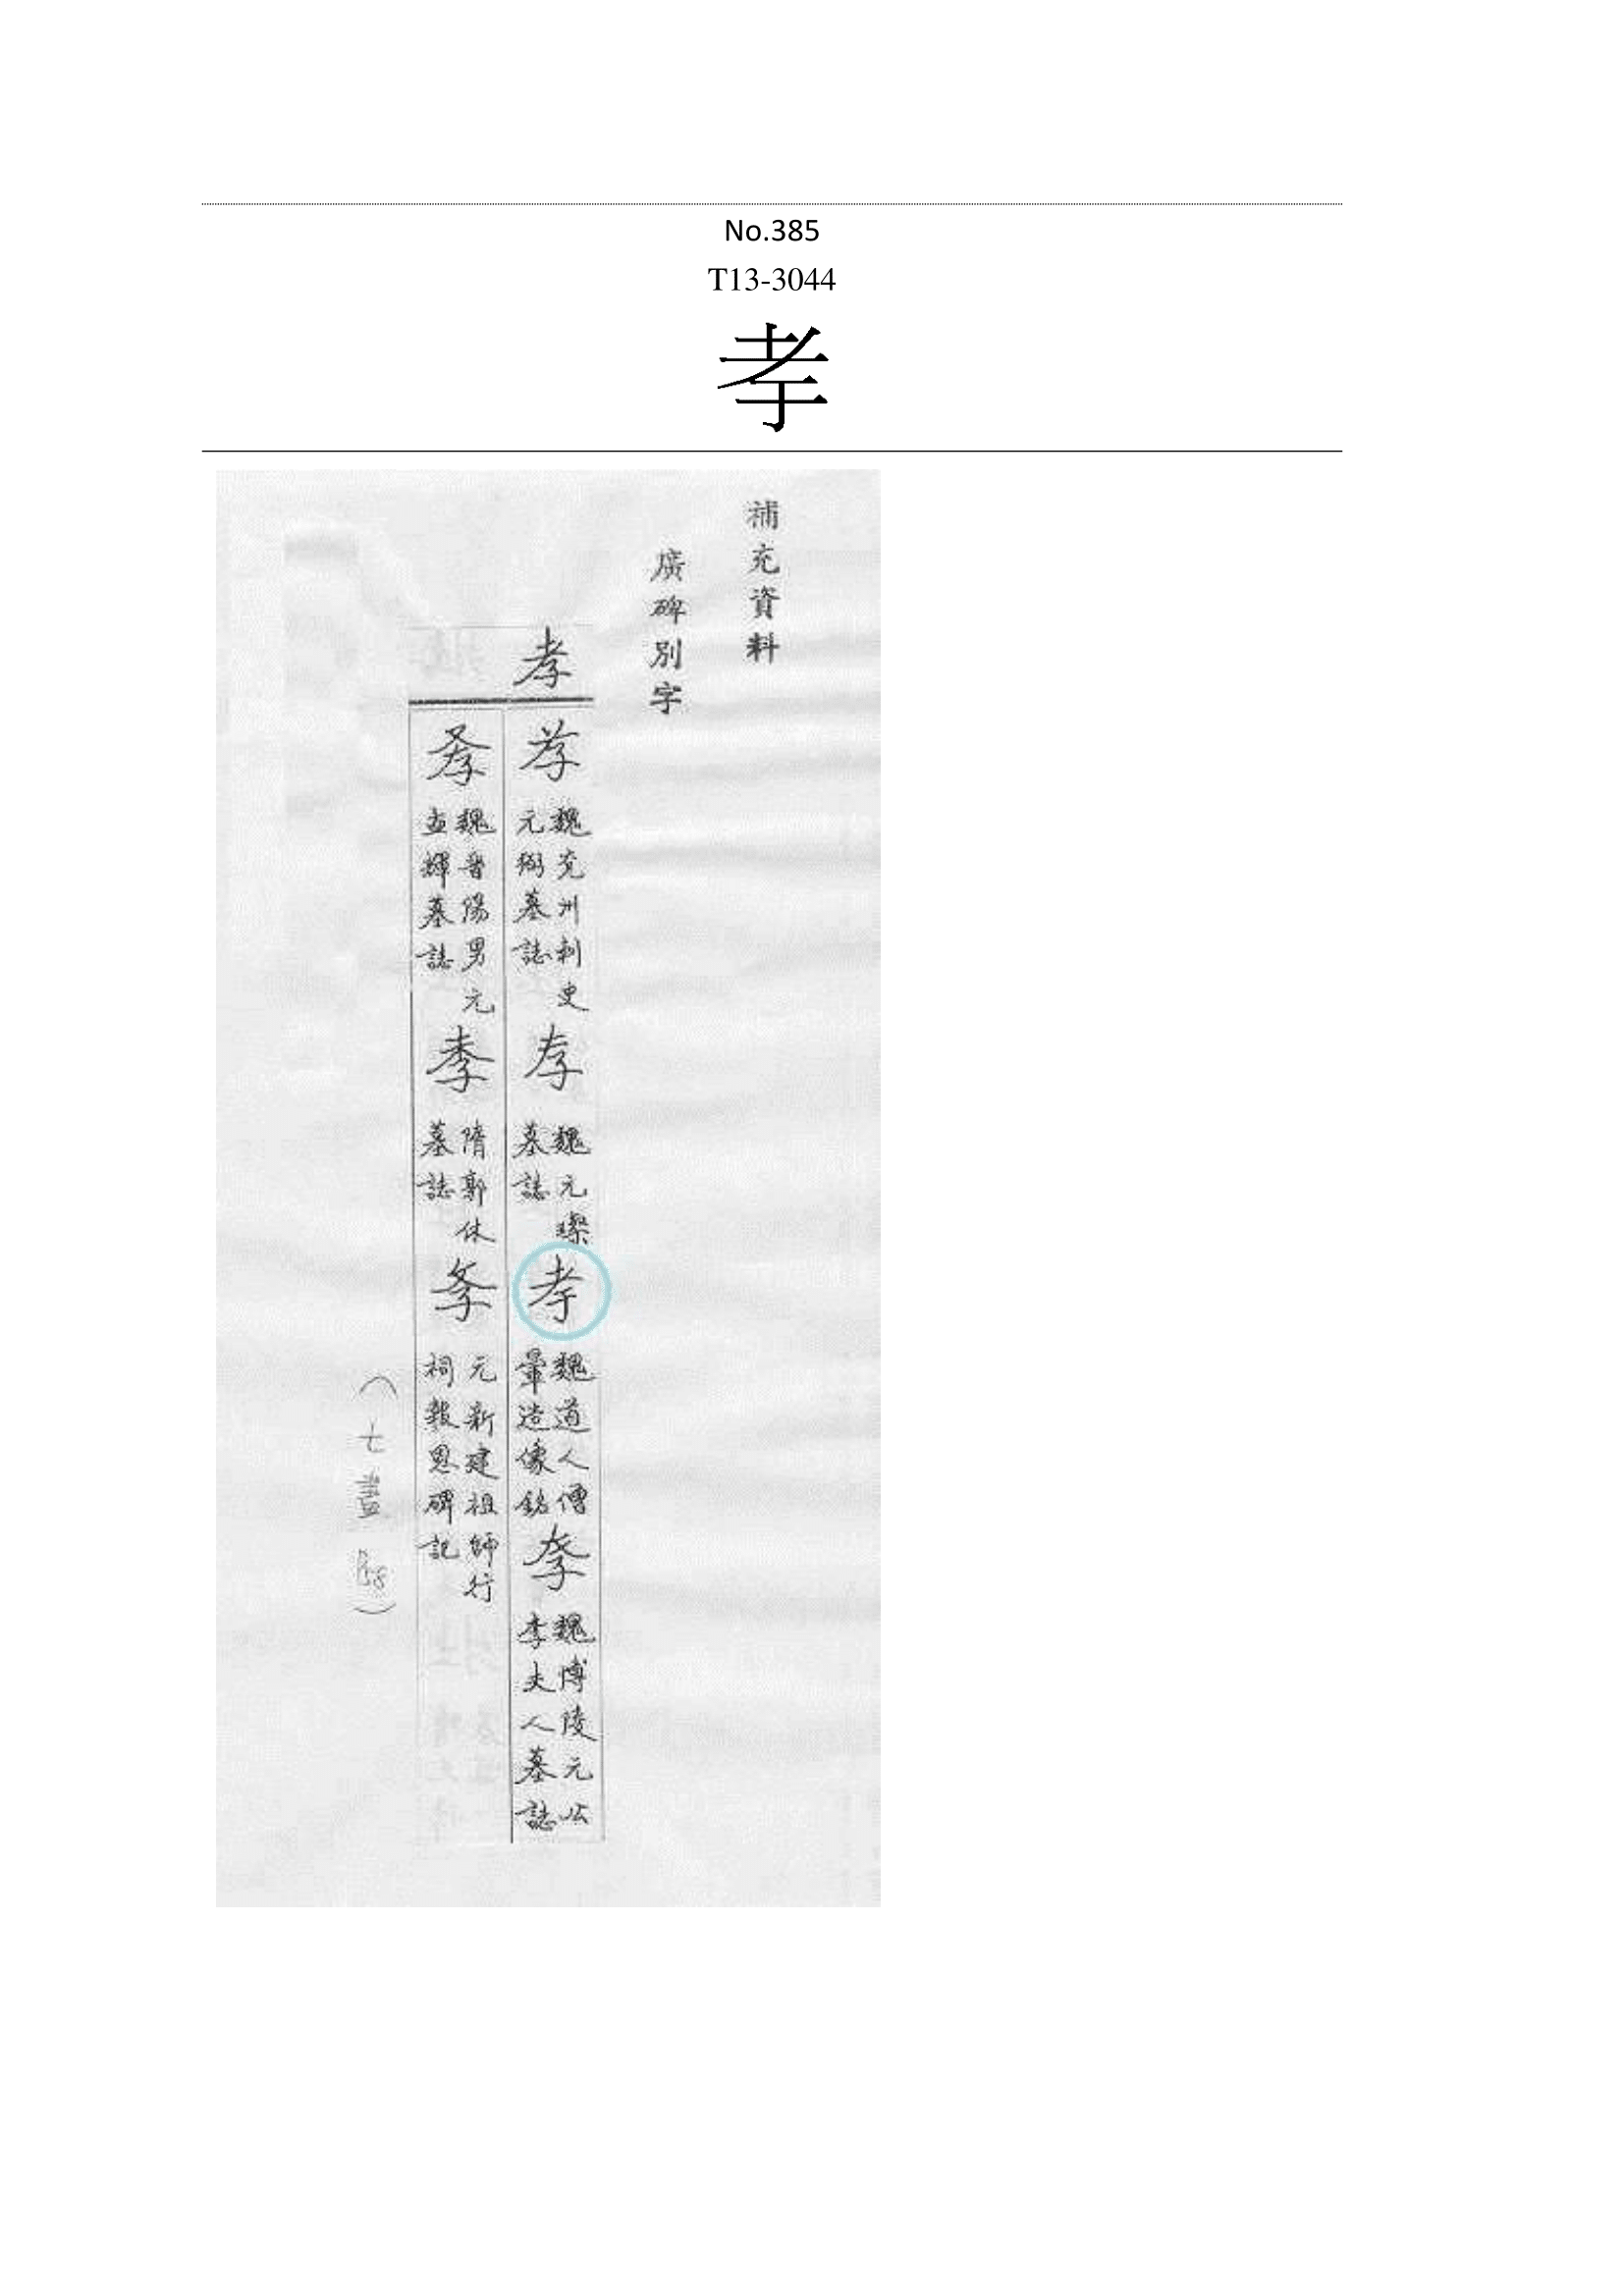 No.385
T13-3044
補充資料
廣碑別字
孝
魏兖州刺史
元弼墓誌
魏元璨
墓誌
魏道人僧
暈造像銘
魏博陵元公
李夫人墓誌
魏晉陽男元
孟輝墓誌
隋郭休
墓誌
元新建祖師行
祠報恩碑記